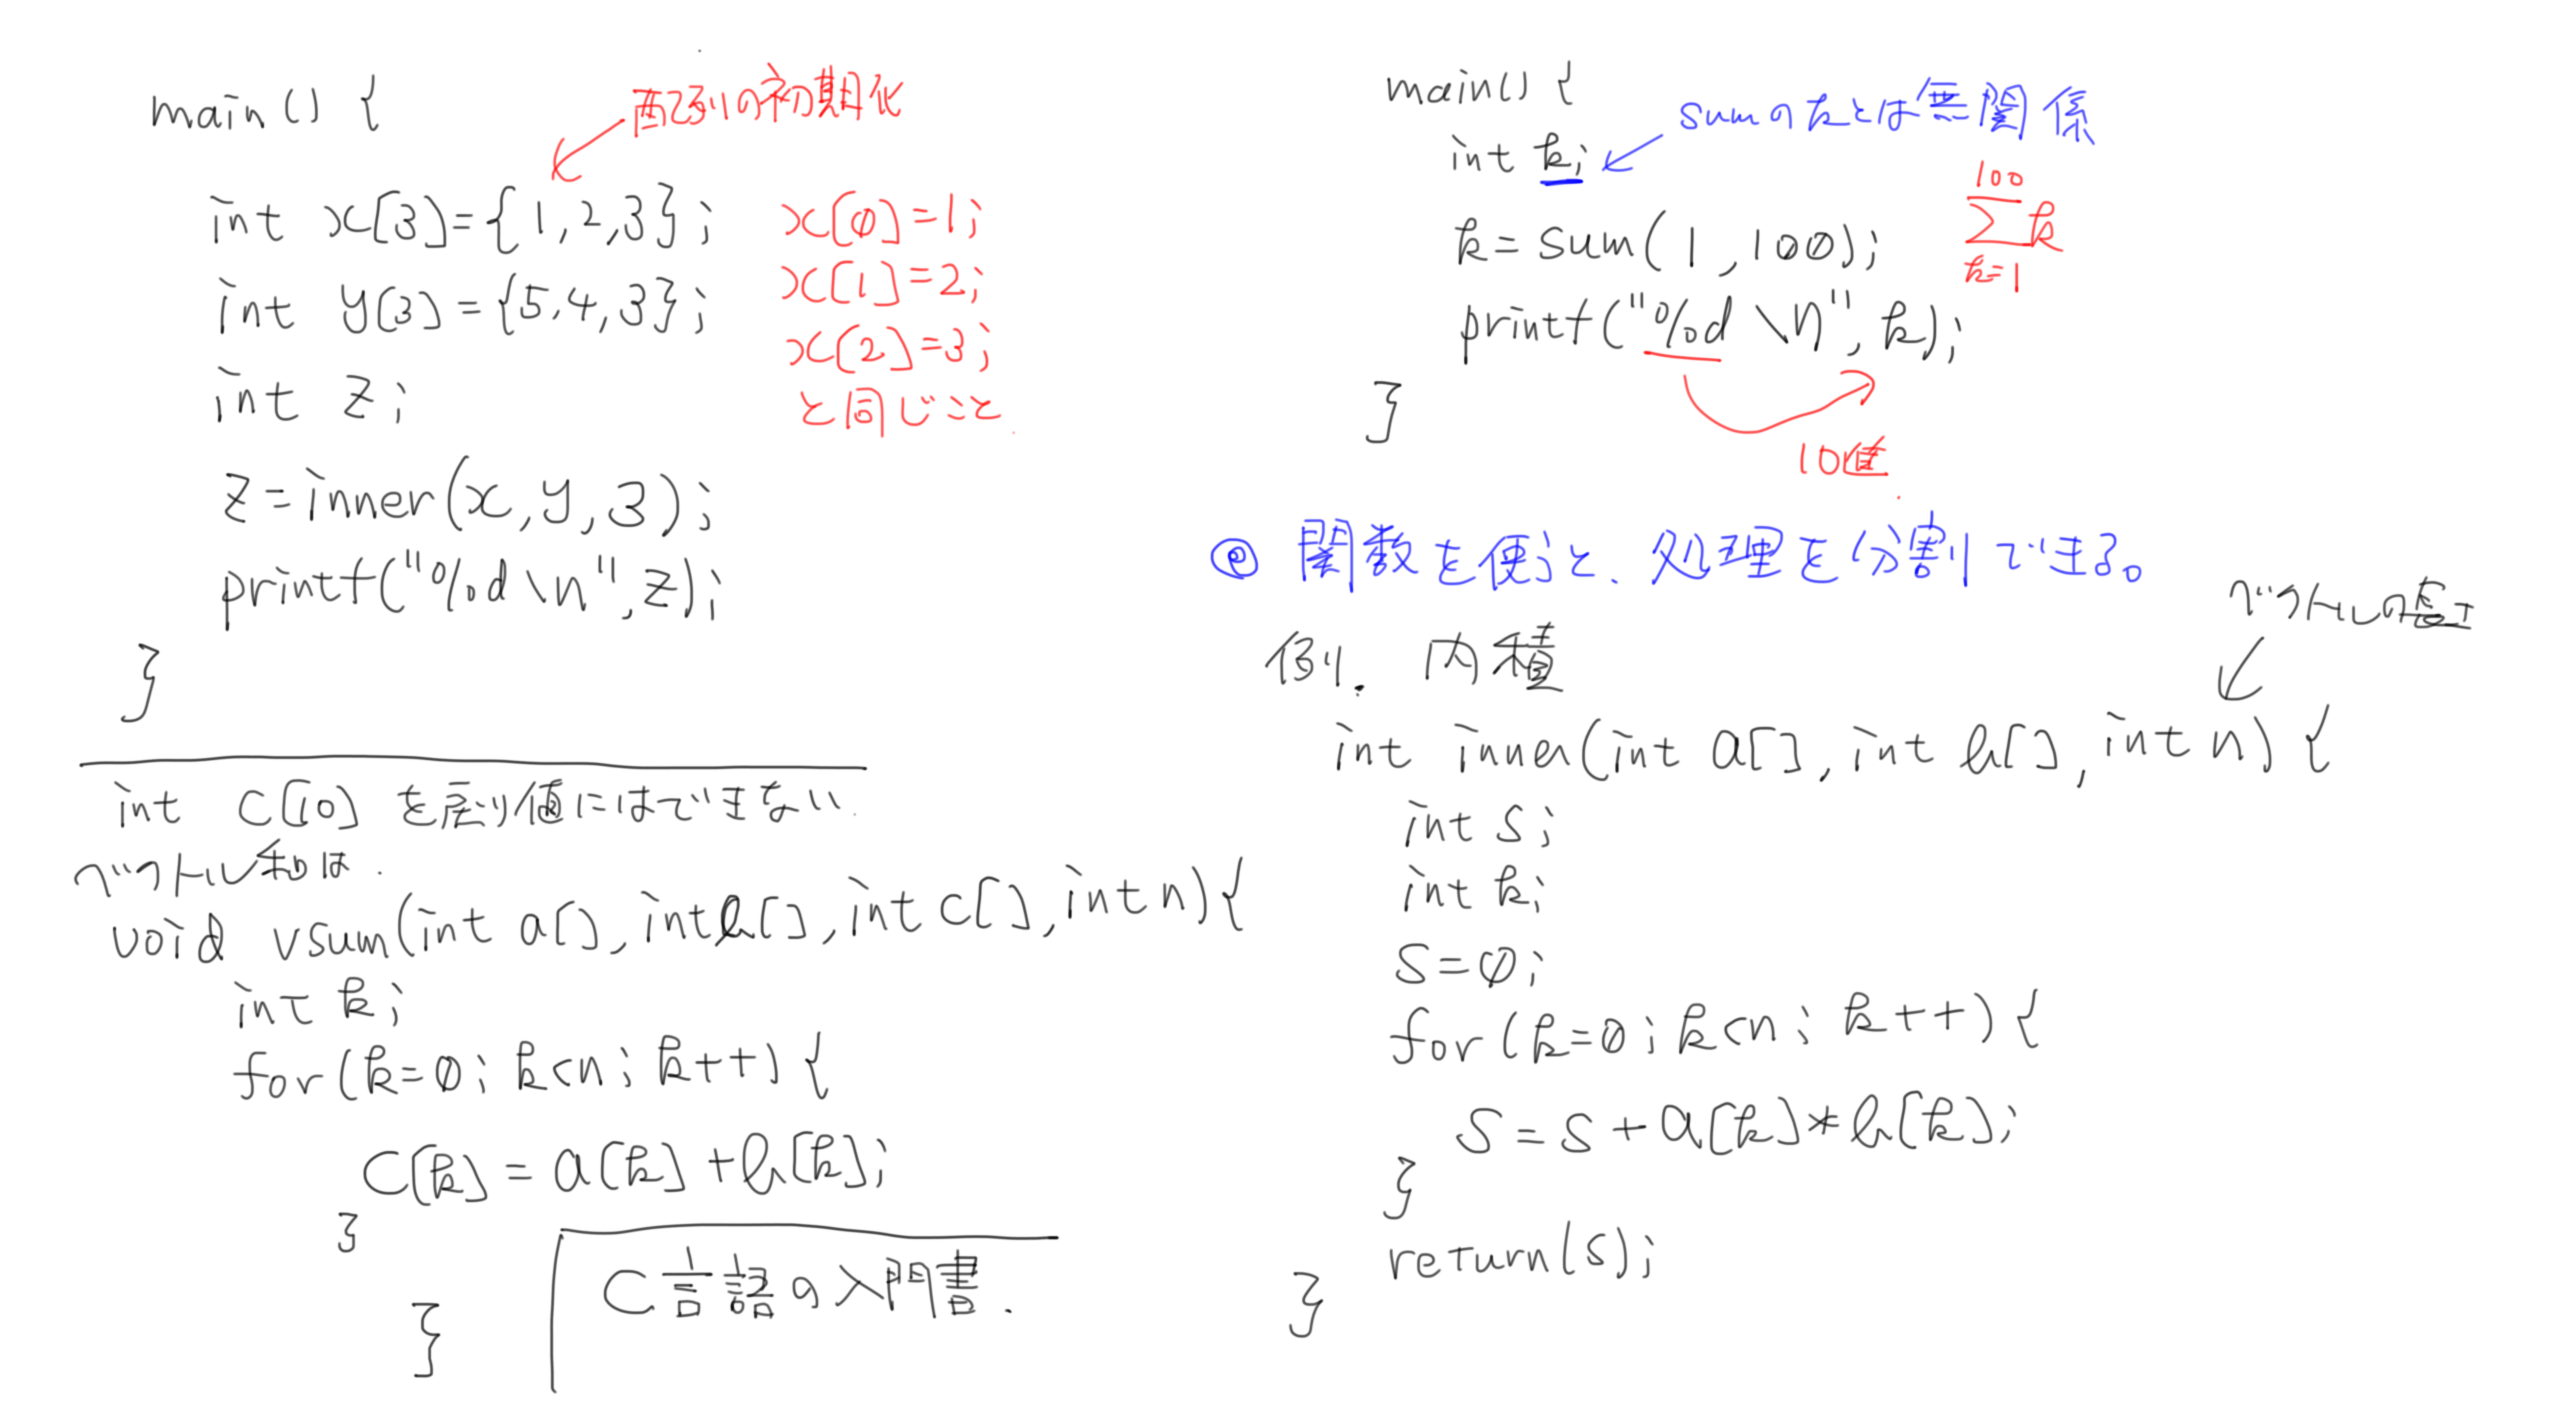 main() {
配列の初期化
int x[3]={1,2,3};
x[0]=1;
int y[3]={5,4,3};
x[1]=2;
x[2]=3;
int z;
と同じこと
z=inner(x,y,3);
printf("%d\n",z);
}
int c[10] を戻り値にはできない
ベクトル和は.
void vsum(int a[],int b[],int c[],int n){
int k;
for(k=0;k<n;k++){
c[k]=a[k]+b[k];
}
}
C言語の入門書.
main() {
sumのkとは無関係
int k;
k=sum(1,100);
100
Σk
k=1
printf("%d \n",k);
}
10進
◎ 関数を使うと、処理を分割できる。
ベクトルの長さ
例. 内積
int inner(int a[],int b[],int n){
int s;
int k;
s=0;
for(k=0;k<n;k++){
s=s+a[k]*b[k];
}
return(s);
}